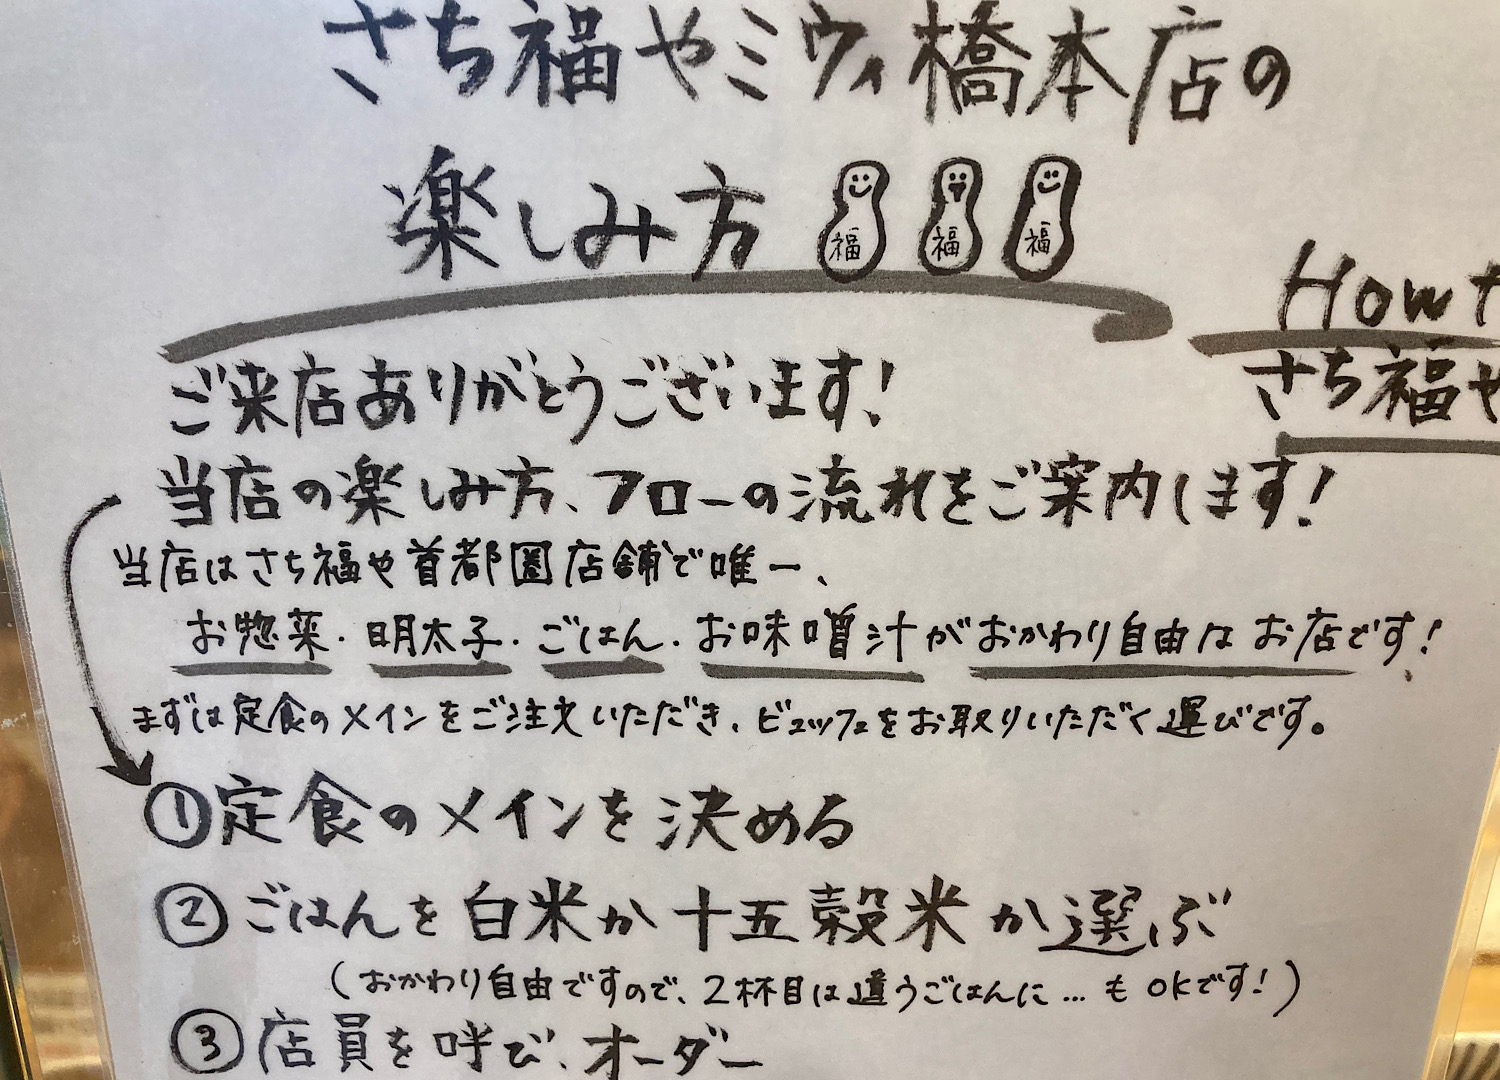 さち福やミウィ橋本店の
楽しみ方
福 福 福
How t
さち福や
ご来店ありがとうございます!
当店の楽しみ方、フローの流れをご案内します!
当店はさち福や首都圏店舗で唯一、
お惣菜・明太子・ごはん・お味噌汁がおかわり自由なお店です!
まずは定食のメインをご注文いただき、ビュッフェをお取りいただく運びです。
①定食のメインを決める
②ごはんを白米か十五穀米か選ぶ
(おかわり自由ですので、2杯目は違うごはんに…もOKです!)
③店員を呼び、オーダー